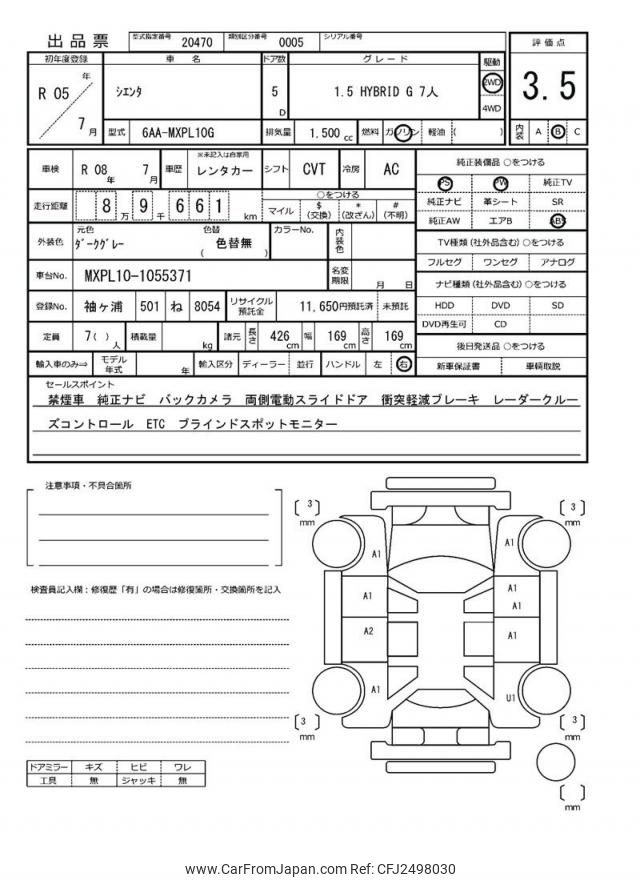 出品票
型式指定番号 20470 類別区分番号 0005 シリアル番号
初年度登録 車 名 ドア数 グレード 駆動 評価点
R 05 年 7 月 シエンタ 5 D 1.5 HYBRID G 7人 2WD 4WD 3.5
型式 6AA-MXPL10G 排気量 1,500 cc 燃料 ガソリン 軽油 ( ) 内装 A B C
車検 R 08 年 7 月 車歴 ※未記入は自家用 レンタカー シフト CVT 冷房 AC
純正装備品 ○をつける
PS PW 純正TV
純正ナビ 革シート SR
純正AW エアB ABS
走行距離 8 万 9 千 6 6 1 km
○をつける
マイル $ (交換) * (改ざん) # (不明)
外装色 元色 ダークグレー 色替 色替無 ( ) カラーNo. 内装色
TV種類 (社外品含む) ○をつける
フルセグ ワンセグ アナログ
車台No. MXPL10-1055371 名変期限 月 日
ナビ種類 (社外品含む) ○をつける
HDD DVD SD
DVD再生可 CD
登録No. 袖ヶ浦 501 ね 8054 リサイクル預託金 11,650円預託済 未預託
定員 7( ) 人 積載量 kg 諸元 長さ 426 cm 幅 169 cm 高さ 169 cm
後日発送品 ○をつける
新車保証書 車輌取説
輸入車のみ⇨ モデル年式 年 輸入区分 ディーラー 並行 ハンドル 左 右
セールスポイント
禁煙車 純正ナビ バックカメラ 両側電動スライドドア 衝突軽減ブレーキ レーダークルー
ズコントロール ETC ブラインドスポットモニター
注意事項・不具合箇所
検査員記入欄：修復歴「有」の場合は修復箇所・交換箇所を記入
ドアミラー キズ ヒビ ワレ
工具 無 ジャッキ 無
[ 3 ] mm
[ 3 ] mm
A1
A1
A1
A1
A1
A2
A1
A1
U1
[ 3 ] mm
[ 3 ] mm
[ ] mm
www.CarFromJapan.com Ref: CFJ2498030